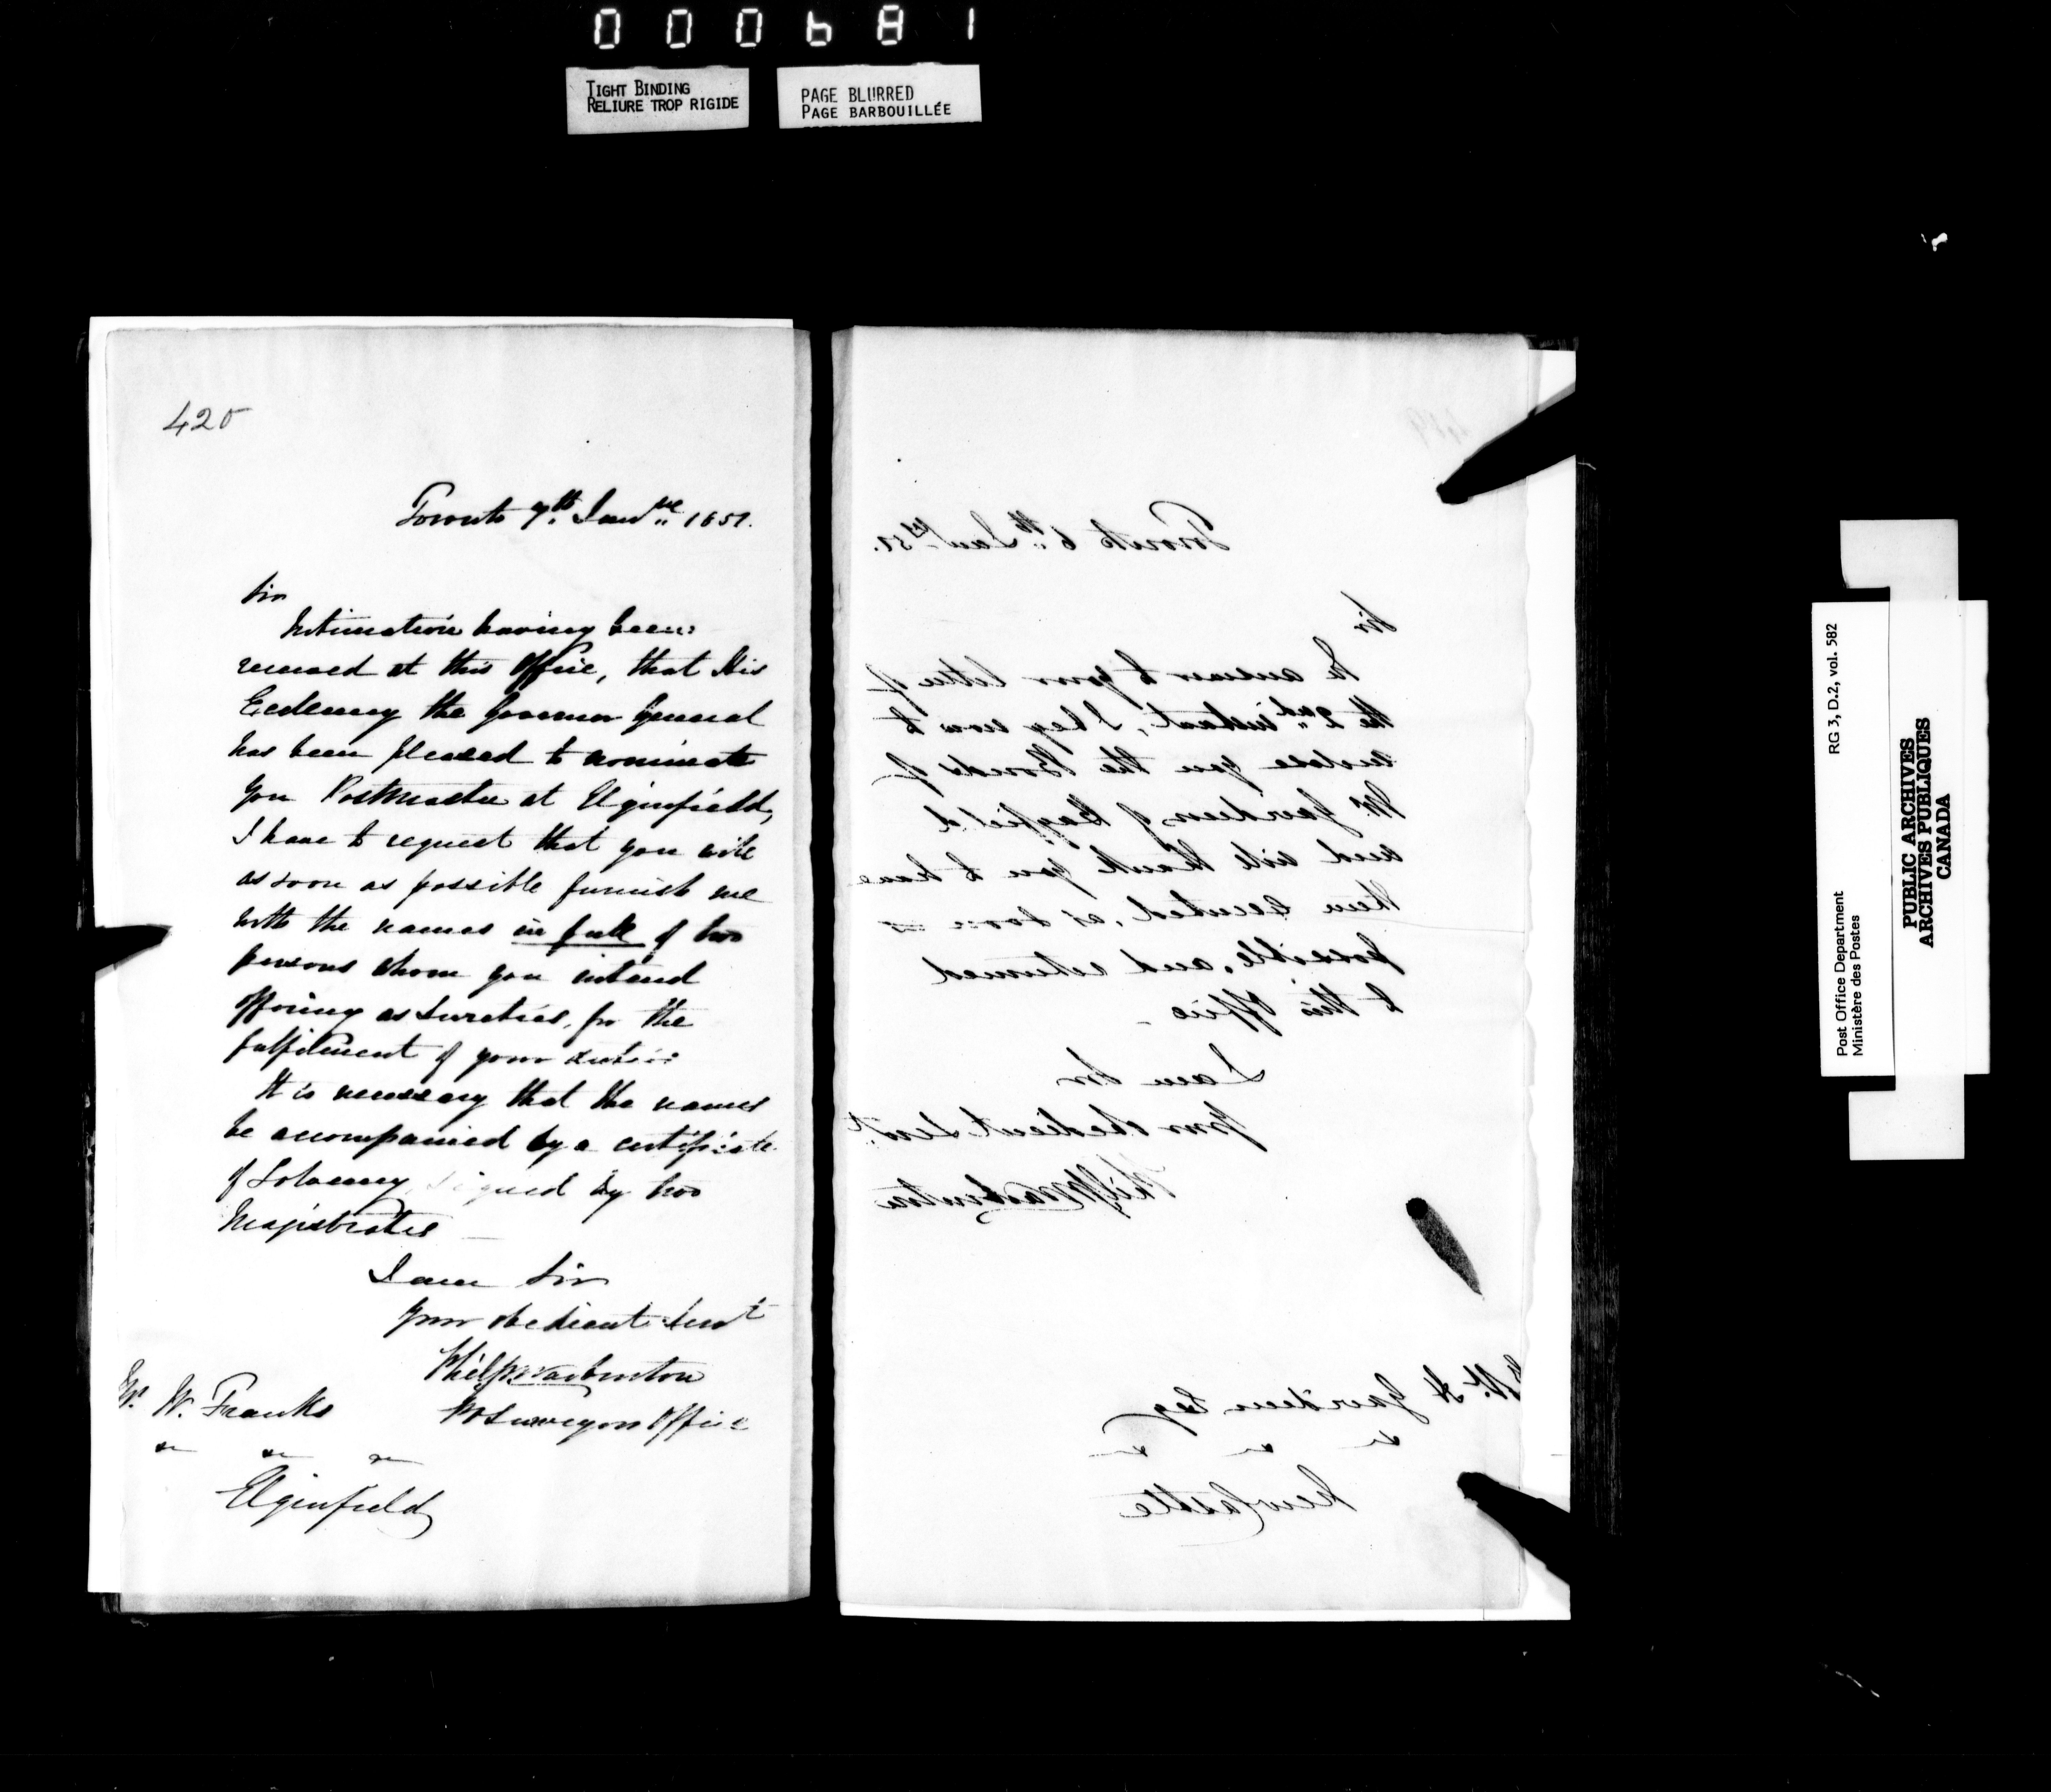 000681
TIGHT BINDING
RELIURE TROP RIGIDE
PAGE BLURRED
PAGE BARBOUILLÉE
420
Toronto 7th Jany 1851.
Sir
Intimation having been
received at this Office, that His
Excellency the Governor General
has been pleased to nominate
you Postmaster at Elginfield,
I have to request that you will
as soon as possible furnish me
with the names in full of two
persons whom you intend
offering as Sureties, for the
fulfilment of your duties
It is necessary that the names
be accompanied by a certificate
of Solvency signed by two
Magistrates
I am Sir
Your obedient Servt
Phil Warburton
PO Surveyors Office
Mr W. Franks
Elginfield
Toronto 6th Jany 51.
Sir
In answer to your letter of
the 2nd instant, I beg now to
enclose you the Bonds of
Mr Gairdner of Bayfield
and will thank you to have
them Executed, as soon as
possible, and returned
to this Office
I am Sir
Your obedient Servt
Phil Warburton
H Gairdner Esq
New Castle
Post Office Department
Ministère des Postes
RG 3, D.2, vol. 582
PUBLIC ARCHIVES
ARCHIVES PUBLIQUES
CANADA